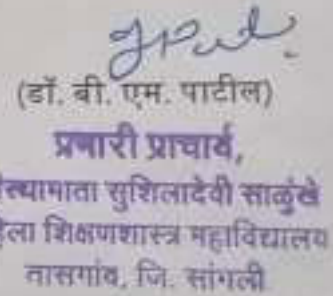 (डॉ. बी. एम. पाटील)
प्रभारी प्राचार्य,
संस्थामाता सुशिलादेवी साळुंखे
महिला शिक्षणशास्त्र महाविद्यालय
तासगांव, जि. सांगली